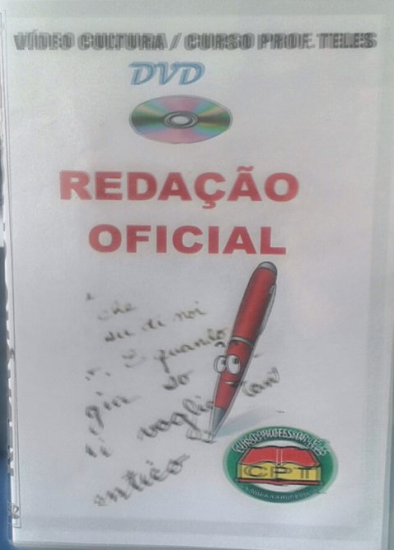 VÍDEO CULTURA / CURSO PROF. TELES
DVD
REDAÇÃO
OFICIAL
che
su di noi
E quando
gia so
ti voglio
antico
CURSO PROFESSOR TELES
CPT